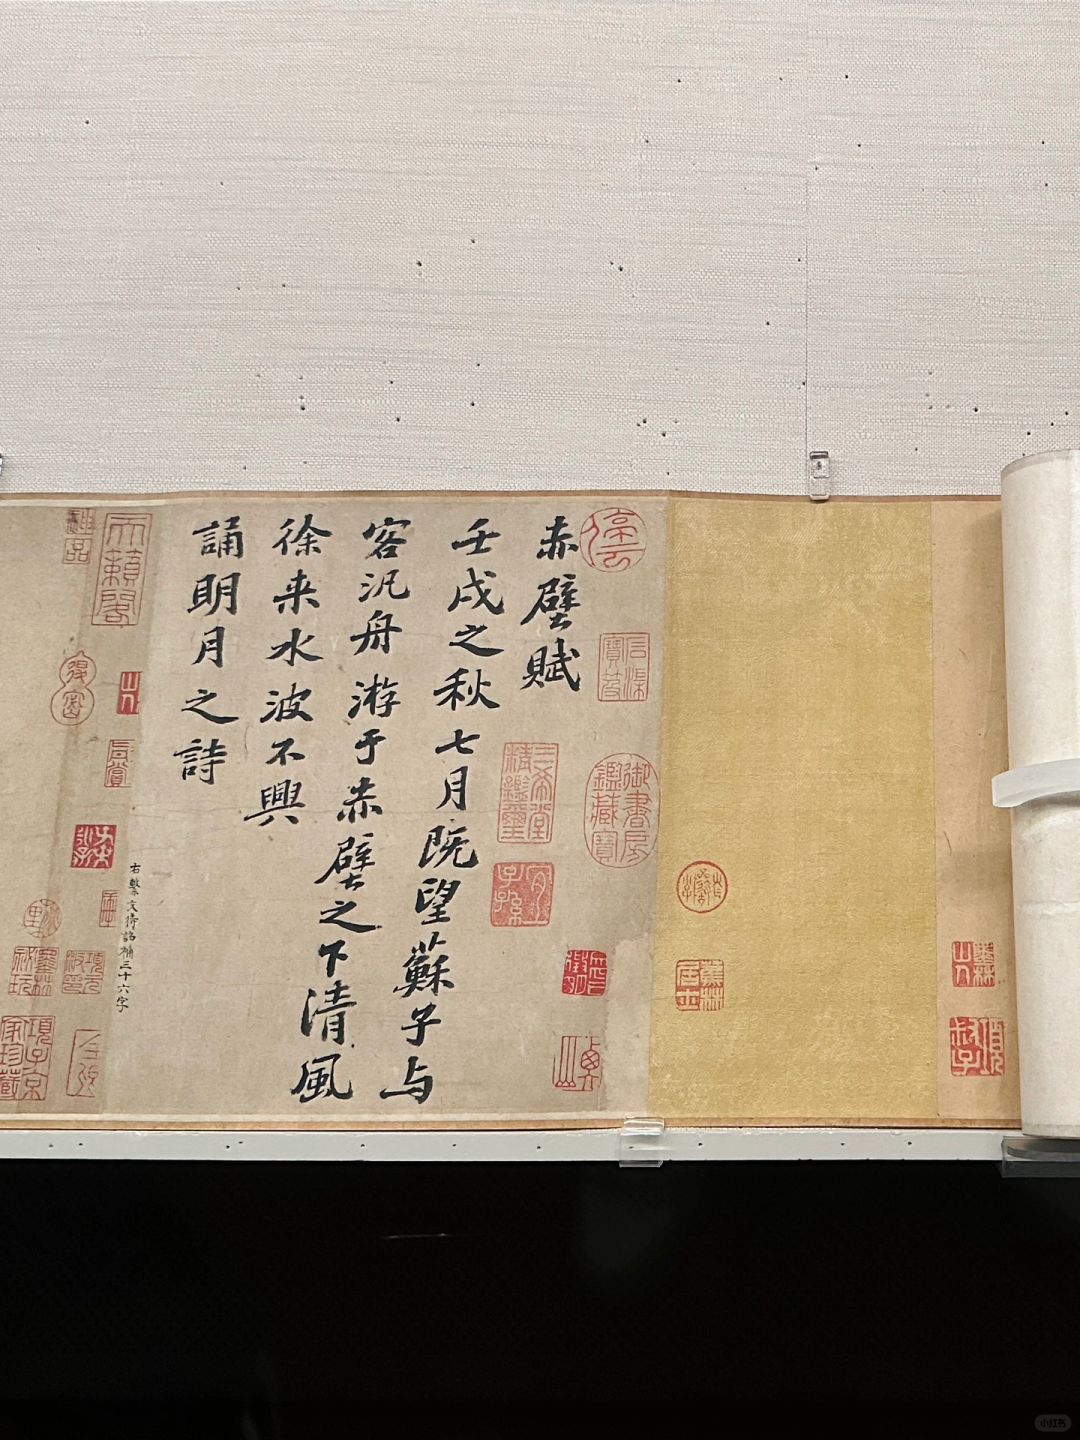 墨林山人
蕉林居士
御書房鑑藏寶
三希堂精鑑璽
宜子孫
赤壁賦
壬戌之秋七月既望蘇子与
客汎舟游于赤壁之下清風
徐来水波不興
誦明月之詩
右繫文待詔補三十六字
天籟閣
神品
墨林祕玩
項子京家珍藏
小红书